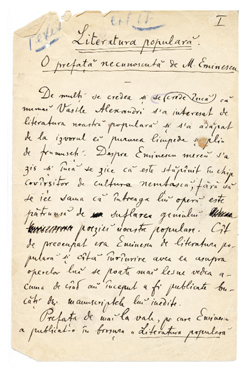 I
Literatura populară.
O prefață necunoscută de M. Eminescu
De multă se credea și se (crede încă) că
numai Vasile Alexandri s'a interesat de
literatura noastră populară și s'a adăpat
de la izvorul cu puterea limpede și plin
de frumuseți. Despre Eminescu mereu s'a
zis și încă se zice că este stăpânit în chip
covârșitor de cultura nemțească, fără să
se ție sama că întreaga lui operă este
pătrunsă de suflarea geniului
poeziei noastre populare. Cât
de preocupat era Eminescu de literatura po-
pulară și câtă înrîurire avea ea asupra
operelor lui se poate mai lesne vedea a-
cuma de când au început a fi publicate bu-
căți din manuscriptele lui inedite.
Prefața de mai la vale, pe care Eminescu
a publicat-o în broșura « Literatura populară